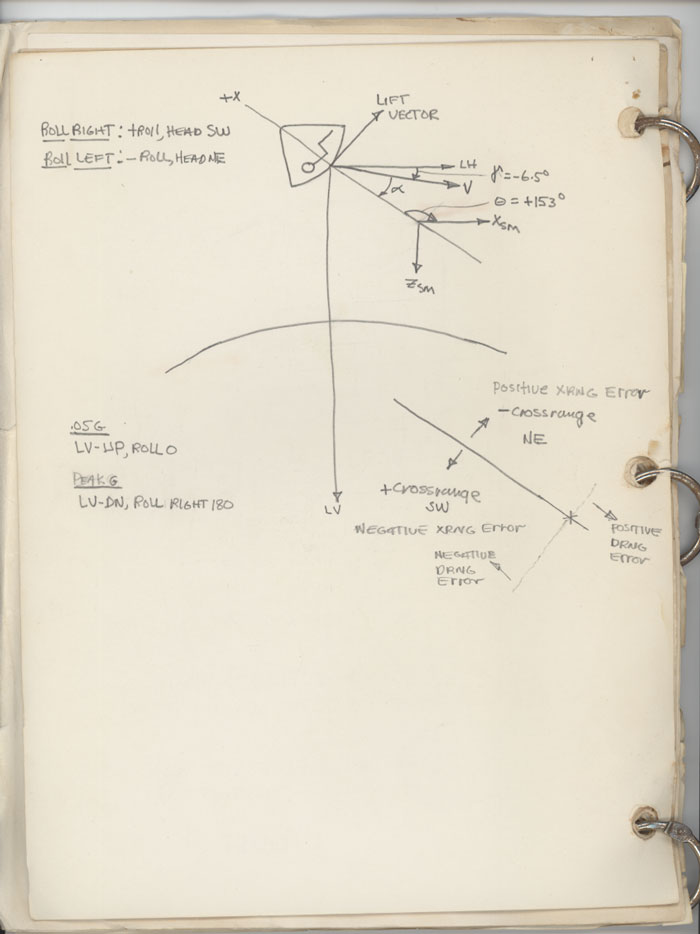 +X
LIFT
VECTOR
ROLL RIGHT: +ROLL, HEAD SW
ROLL LEFT: -ROLL, HEAD NE
LH
γ=-6.5°
V
α
θ=+153°
XSM
ZSM
POSITIVE XRNG Error
-crossrange
NE
.05G
LV-UP, ROLL 0
PEAK G
LV-DN, ROLL RIGHT 180
LV
+Crossrange
SW
NEGATIVE XRNG Error
POSITIVE
DRNG
Error
NEGATIVE
DRNG
Error